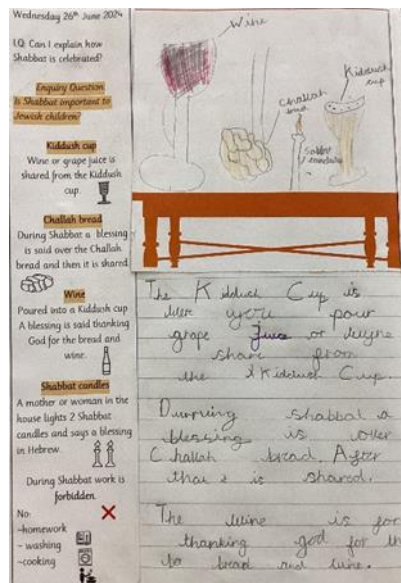 Wednesday 26th June 2024
I.Q: Can I explain how
Shabbat is celebrated?
Enquiry Question
Is Shabbat important to
Jewish children?
Kiddush cup
Wine or grape juice is
shared from the Kiddush
cup.
Challah bread
During Shabbat a blessing
is said over the Challah
bread and then it is shared
Wine
Poured into a Kiddush cup
A blessing is said thanking
God for the bread and
wine.
Shabbat candles
A mother or woman in the
house lights 2 Shabbat
candles and says a blessing
in Hebrew.
During Shabbat work is
forbidden.
No:
-homework
- washing
-cooking
Wine
Challah
bread
Kiddush
cup
The Kidduch Cup is
you pour
grape juice or wine
share from
the Kidduch Cup.
Durring shabbat a
blessing is over
Challah bread. After
is shared.
The wine is for
thanking god for th
to bread and wine.